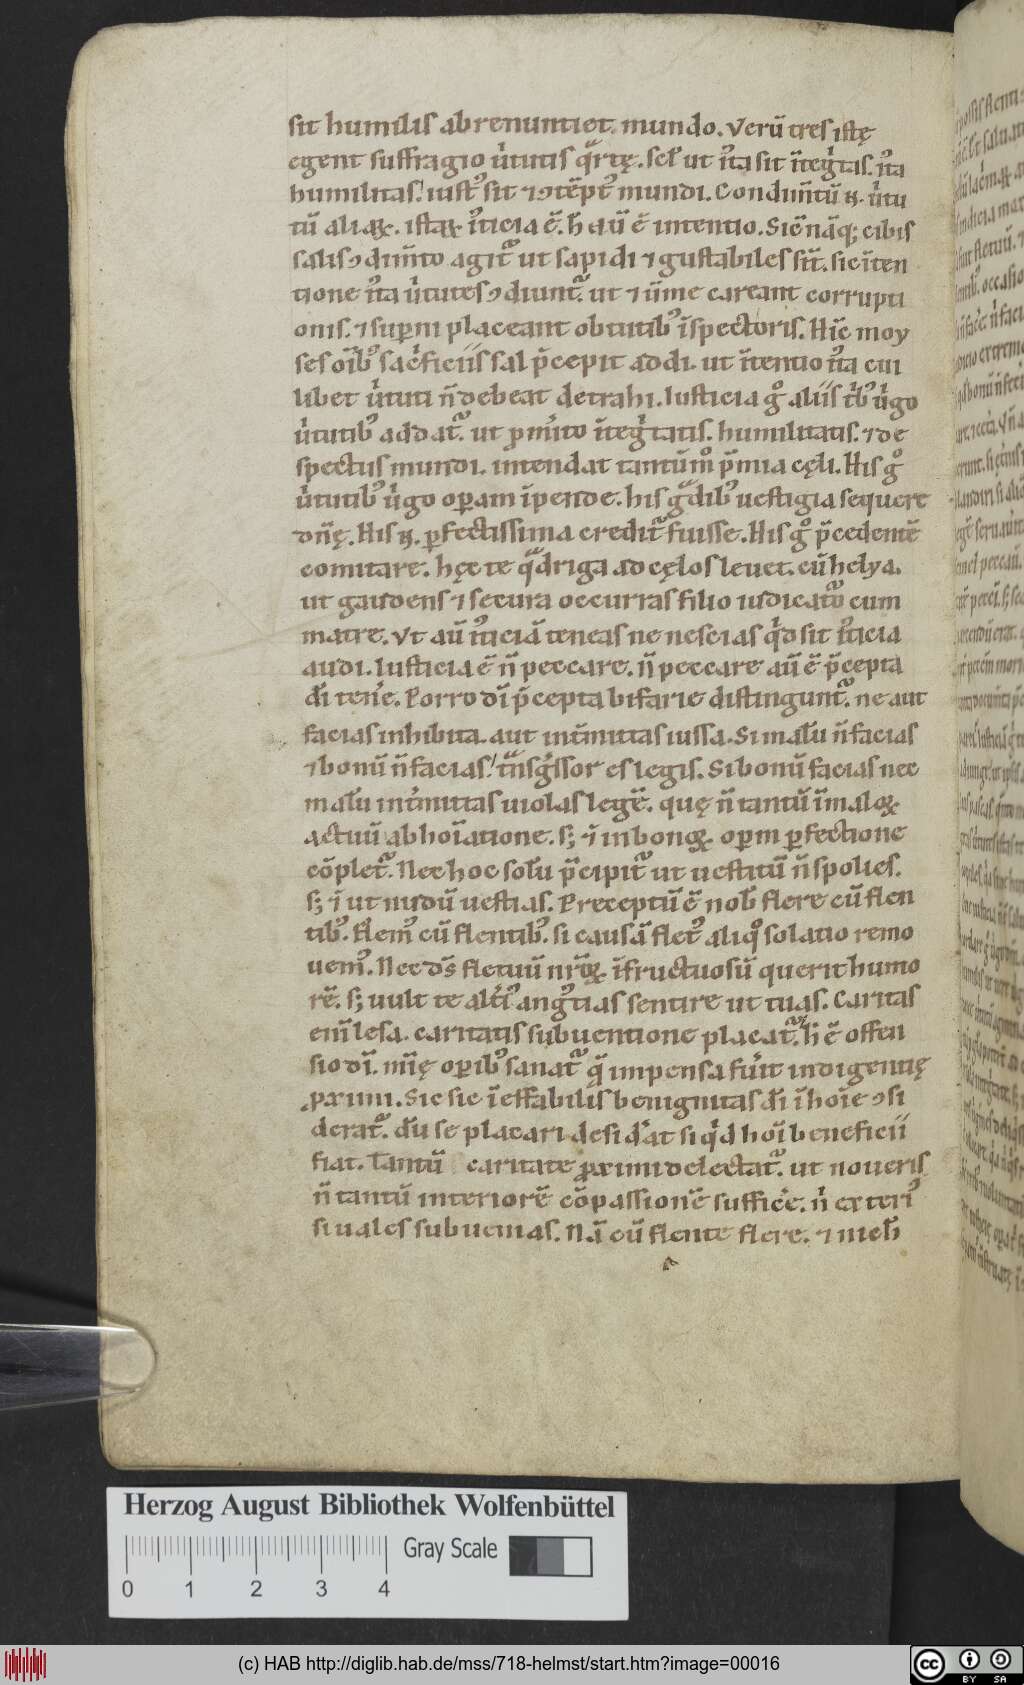 sit humilis abrenuntiet mundo. Verū tres istę
egent suffragio ůtutis qrtę. scł ut ıͣta sit ĩtegͥtas. ıͣta
humilitas. iustꝰ sit ⁊ ꝯtēptꝰ mundi. Condunͭtū ꝶ. ůtu
tū aliaꝝ. istaꝝ iͣticia ē. ħ aū ē intentio. Sic nāq; cibis
salis ꝯdimͭto agitᷣ ut sapidi ⁊ gustabiles sīt. sic ĩten
tione ıͣta ůtutes ꝯdiuntᷣ. ut ⁊ ūme careant corrupti
onis. ⁊ supni placeant obtutibꝰ ĩspectoris. Hīc moy
ses oīb sacͥficiis sal p̄cepit addi. ut ĩtentio ıͣta cui
libet ůtuti n̄ debeat detrahi. Iusticia gͦ aliis tͥbꝰ ůgo
ůtutibꝰ addatᷣ. ut pmͥto ĩtegͥtatis. humilitatis. ⁊ de
spectus mundi. intendat tantūmͦ p̄mia cęli. His gͦ
ůtutibꝰ ůgo opam ĩpende. his gͣdibꝰ uestigia sequere
dn̄ę. His ꝶ. pfectissima creditᷣ fuisse. His gͦ p̄cedentē
comitare. hęc te qͣdriga ad cęlos leuet. cū helya.
ut gaudens ⁊ secura occurras filio iudicatͦ cum
matre. Vt aū iͣticiā teneas ne nescias qͥd sit iͣticia
audi. Iusticia ē n̄ peccare. n̄ peccare aū ē p̄cepta
dī tenͥe. Porro dī p̄cepta bifarie distinguntᷣ. ne aut
facias inhibita. aut int̃mittas iussa. Si malū n̄ facias
⁊ bonū n̄ facias. tn̄sgͥssor es legis. Si bonū facias nec
malū int̃mittas uiolas legē. quę n̄ tantū ĩ maloꝝ
actuū abhoīatione. s; ⁊ ĩ in bonoꝝ. opm pfectione
cōpletᷣ. Nec hoc solū p̄cipitᷣ ut uestitū n̄ spolies.
s; ⁊ ut nudū uestias. Preceptū ē nob flere cū flen
tibꝰ. Flemꝰ cū flentibꝰ. si causā fletꝰ aliqͦ solatio remo
uemꝰ. Nec ds̄ fletuū nr̄oꝝ ĩfructuosū querit humo
rē. s; uult te altiͥꝰ angͦtias sentire ut tuas. Caritas
enī lesa. caritatis subuentione placatᷣ. ħ ē offen
sio dī. mīę opibꝰ sanatᷣ. q̄ impensa fuͥit indigentię
pximi. Sic sic ĩeffabilis benignitas dī ĩ hoīe ꝯsi
deratᷣ. dū se placari desidͣat si qͥd hoī beneficii
fiat. Tantū caritate pximi delectatᷣ. ut noueris
n̄ tantū interiorē cōpassionē sufficͥe. nͥ exteriꝰ
si uales subuenias. Nā cū flente flere. ⁊ nich
Herzog August Bibliothek Wolfenbüttel
Gray Scale
0 1 2 3 4
(c) HAB http://diglib.hab.de/mss/718-helmst/start.htm?image=00016
cc BY SA